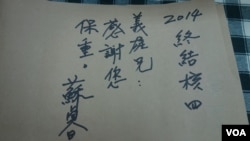 2014 終結核四
義雄兄：
感謝您
保重。蘇
VOA